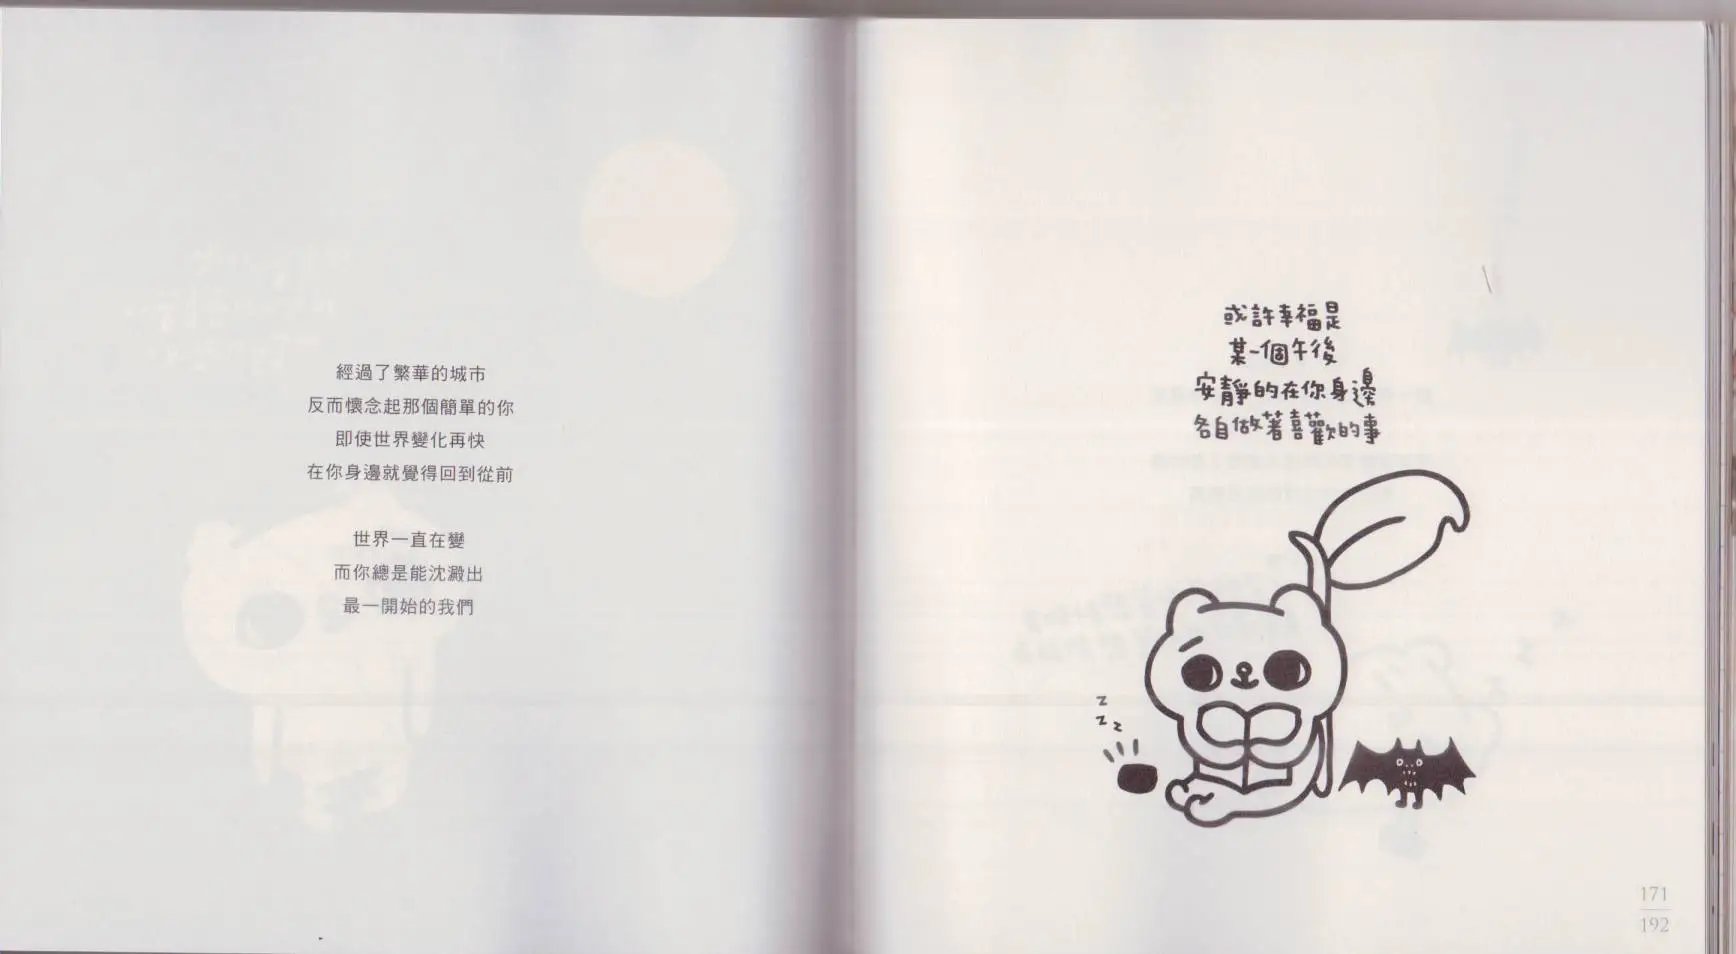 經過了繁華的城市
反而懷念起那個簡單的你
即使世界變化再快
在你身邊就覺得回到從前
世界一直在變
而你總是能沈澱出
最一開始的我們
或許幸福是
某一個午後
安靜的在你身邊
各自做著喜歡的事
z
z z
171
192